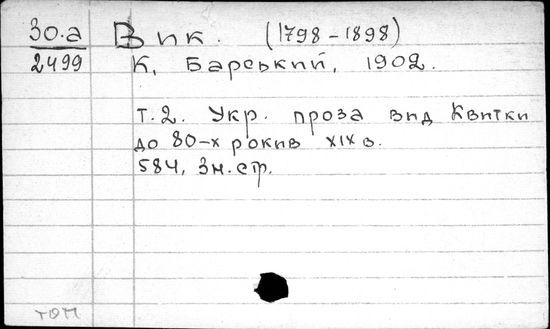 30.а
2499
Вик. (1798-1898)
К. Барський, 1902.
Т.2. Укр. проза вид Квитки
до 80-х рокив XIX в.
584, 3н.стр.
том